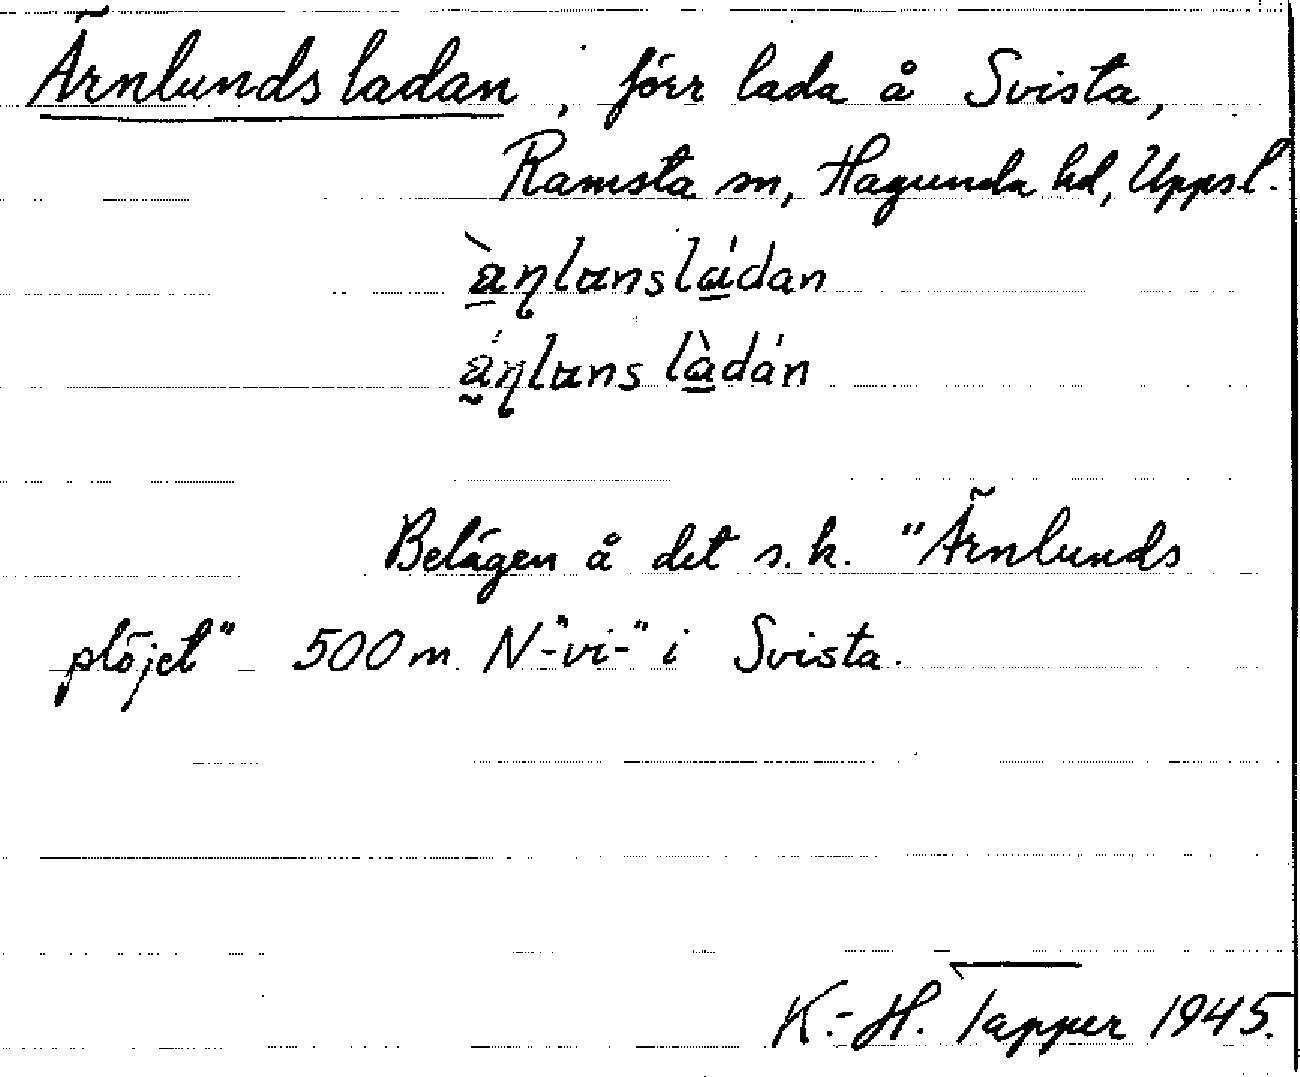 Ärnlundsladan, förr lada å Svista,
Ramsta sn, Hagunda hd, Uppsl.
Belägen å det s.k. "Ärnlunds
plöjet" 500 m N-"vi-" i Svista.
K.-H. Tapper 1945.